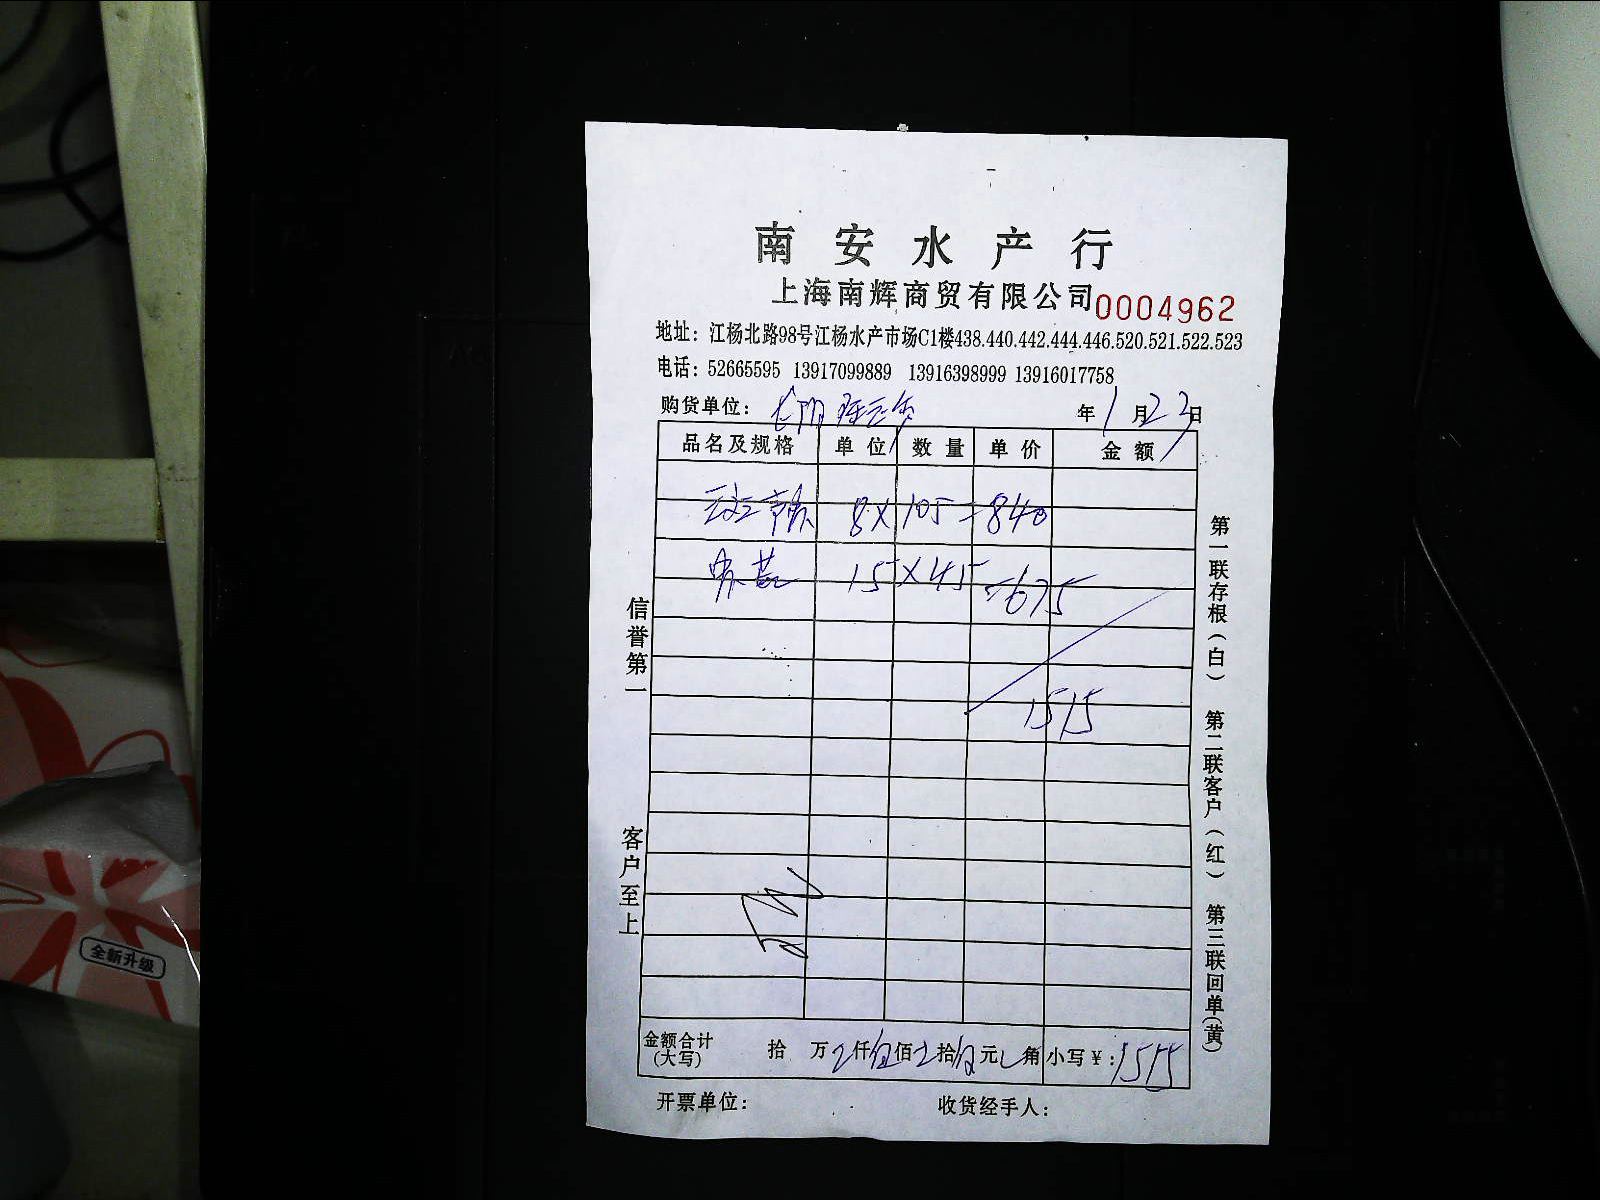 南安水产行
上海南辉商贸有限公司 0004962
地址：江杨北路98号江杨水产市场C1楼438.440.442.444.446.520.521.522.523
电话：52665595 13917099889 13916398999 13916017758
购货单位： 年1月23日
品名及规格 单位 数量 单价 金额
8×105=840
15×45=675
1515
金额合计(大写) 拾 万 仟伍佰 拾 元 角 小写¥：1515
开票单位： 收货经手人：
信誉第一
客户至上
第一联存根（白） 第二联客户（红） 第三联回单(黄)
全新升级